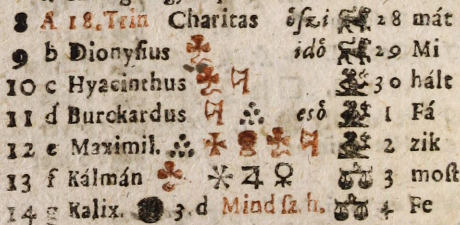 8 A 18. Trin Charitas ößzi 28 mát
9 b Dionyſius idő 29 Mi
10 c Hyacinthus 30 hált
11 d Burckardus eső 1 Fá
12 e Maximil. 2 zik
13 f Kálmán ⚹ ♃ ♀ 3 moſt
14 g Kalix. 3. d Mind ſz. h. 4 Fe